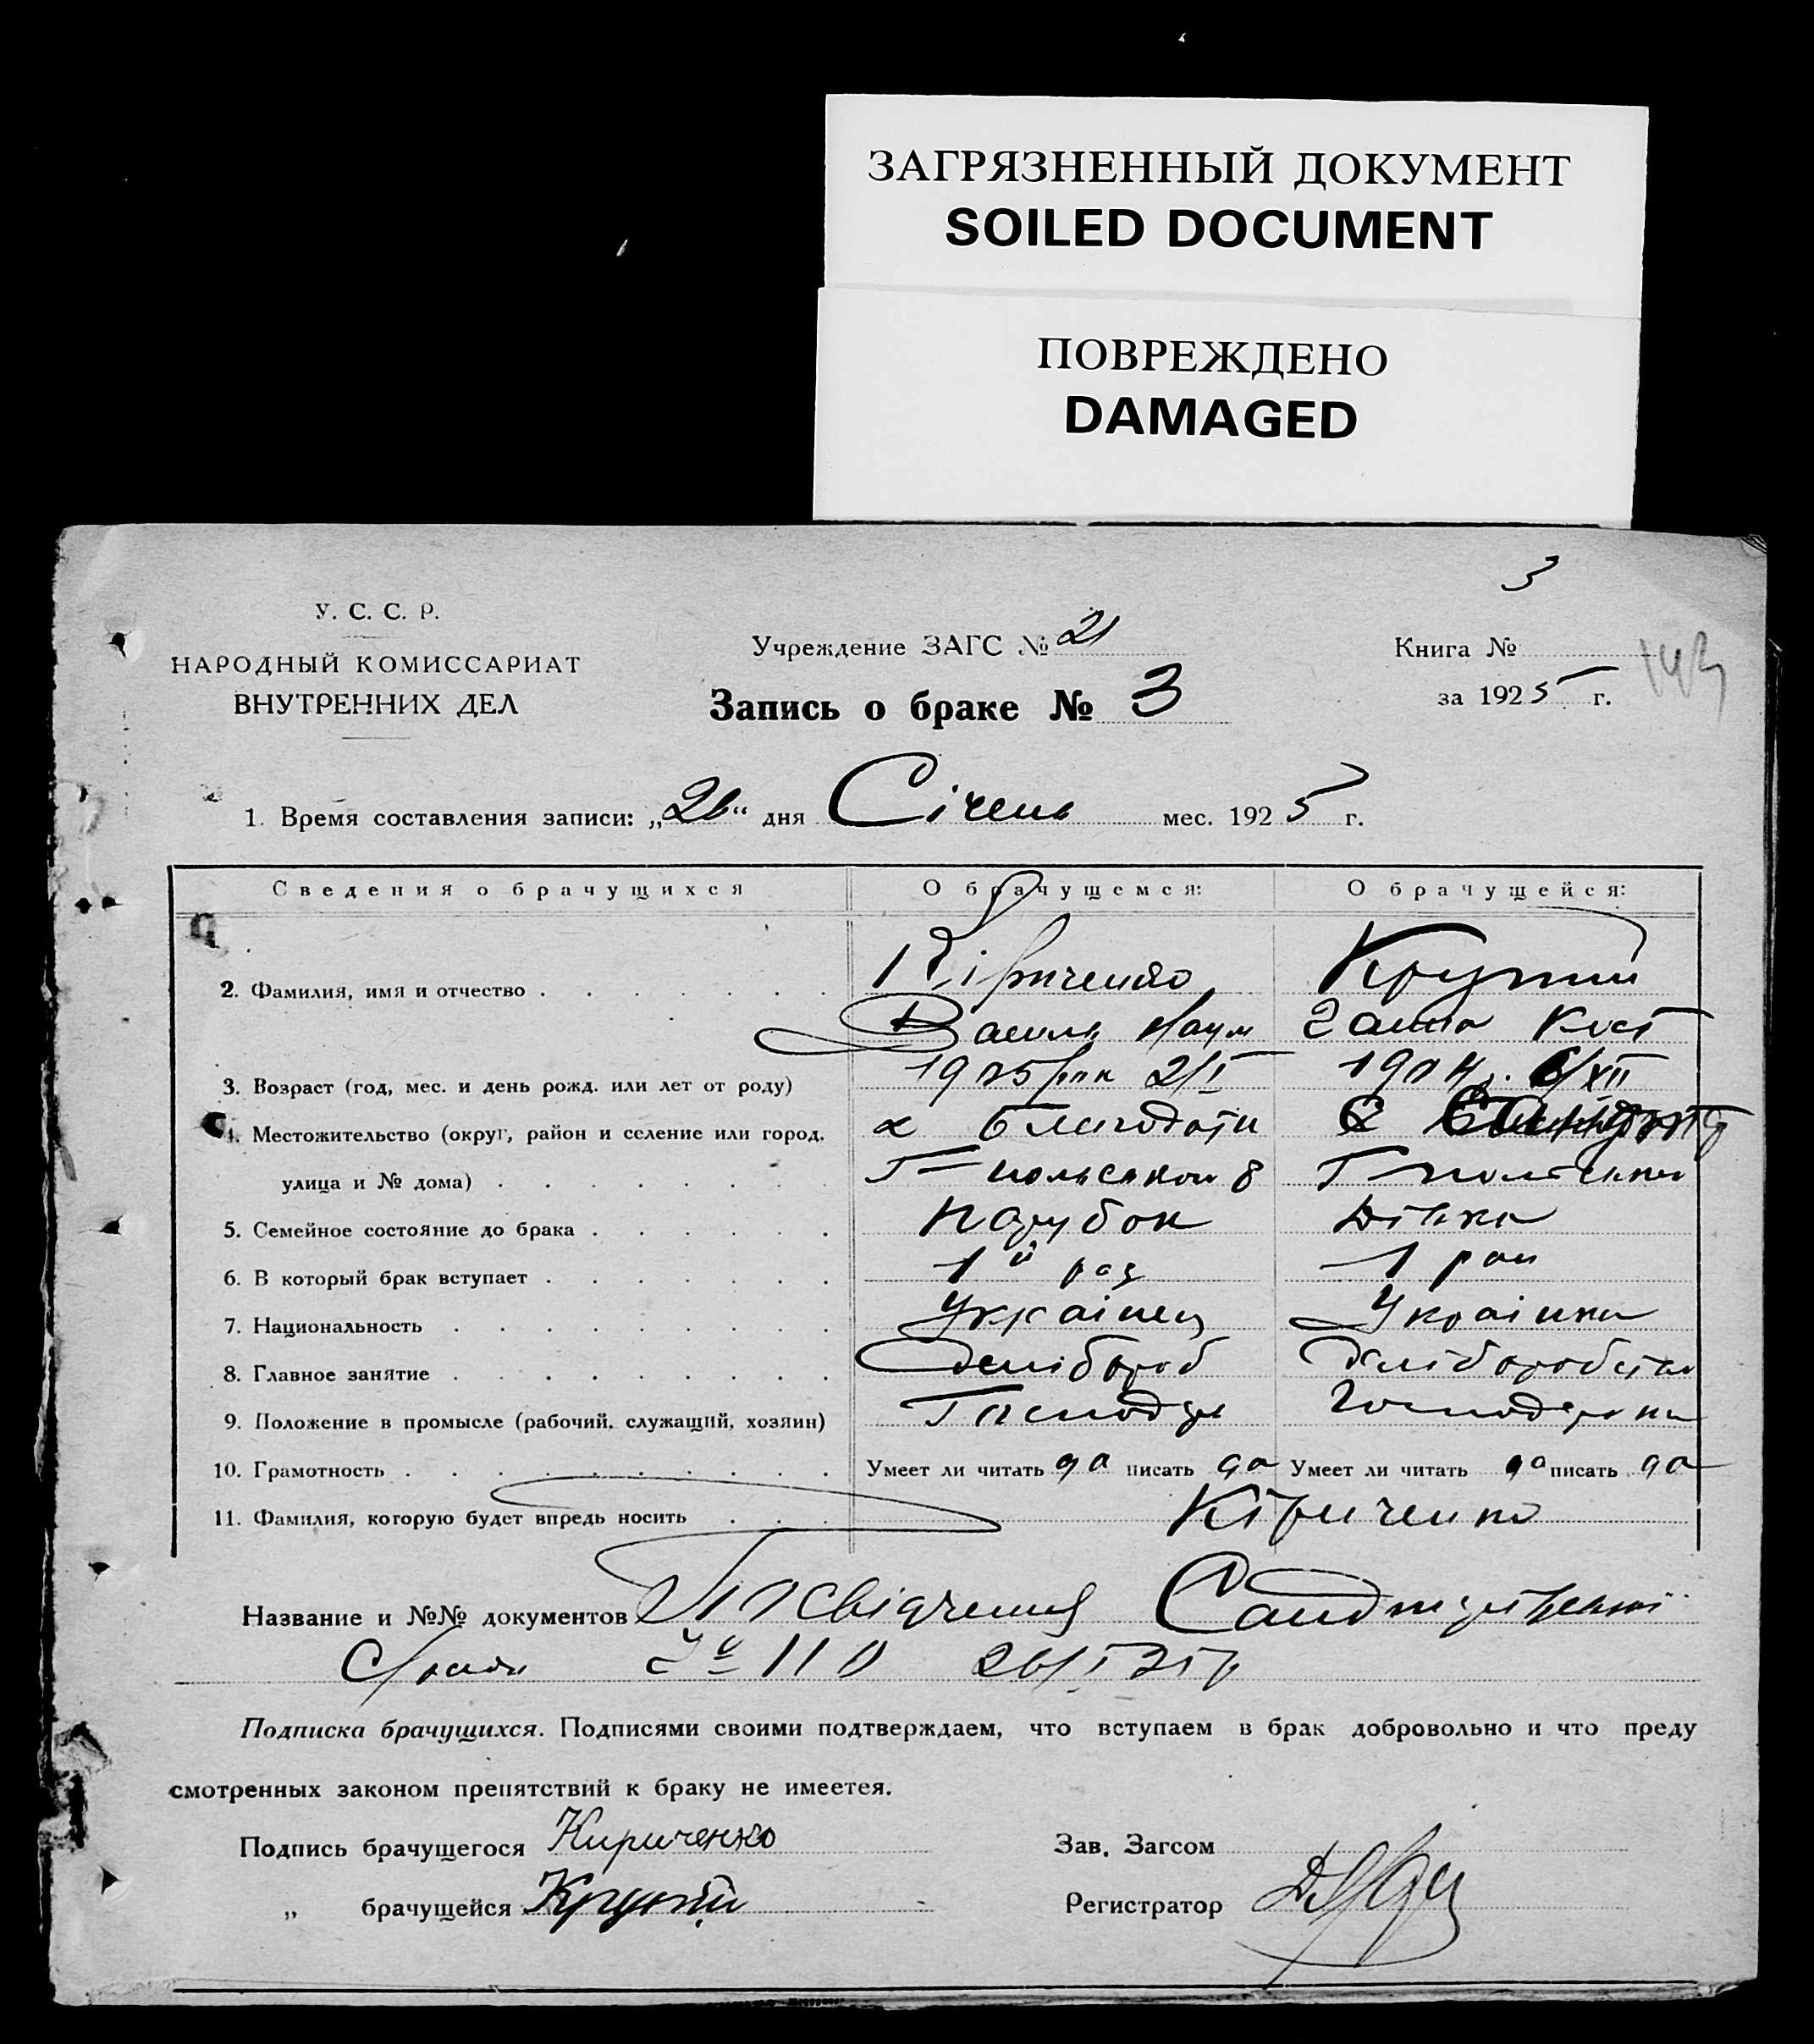 ЗАГРЯЗНЕННЫЙ ДОКУМЕНТ
SOILED DOCUMENT
ПОВРЕЖДЕНО
DAMAGED
3
У. С. С. Р.
НАРОДНЫЙ КОМИССАРИАТ
ВНУТРЕННИХ ДЕЛ
Учреждение ЗАГС № 21
Запись о браке № 3
Книга №
за 1925 г.
143
1. Время составления записи: „26“ дня Січень мес. 1925 г.
Сведения о брачущихся О брачущемся: О брачущейся:
2. Фамилия, имя и отчество Кіриченко
Василь Наум Ганна Кост
3. Возраст (год, мес. и день рожд. или лет от роду) 2/I 1904 р. 6/XII
4. Местожительство (округ, район и селение или город, Благодати
улица и № дома)
5. Семейное состояние до брака Парубок Дівка
6. В который брак вступает 1й раз 1 раз
7. Национальность Українец Українка
8. Главное занятие Хлібороб
9. Положение в промысле (рабочий, служащий, хозяин) Господар
10. Грамотность Умеет ли читать да писать да Умеет ли читать да писать да
11. Фамилия, которую будет впредь носить Кіриченко
Название и №№ документов Посвідчення
№ 110 26/I 25 р
Подписка брачущихся. Подписями своими подтверждаем, что вступаем в брак добровольно и что преду
смотренных законом препятствий к браку не имеется.
Подпись брачущегося Кириченко
Зав. Загсом
„ брачущейся
Регистратор